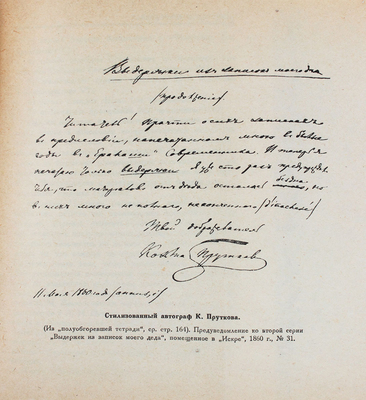 Выдержки из записок моего деда
(продолжение)
Читатель! Прочти о сих записках
в предисловии, напечатанном мною в былые
годы в „Современника“. И теперь
печатаю только выдержки. Я уже сто раз предупреждал
тебя, что материалов от деда осталось бездна, но
в них много неполного, неоконченного
Твой доброжелатель
Козьма Прутков
11 мая 1860 года (annus, i)
Стилизованный автограф К. Пруткова.
(Из „полуобгоревшей тетради“, ср. стр. 164). Предуведомление ко второй серии
„Выдержек из записок моего деда“, помещенное в „Искре“, 1860 г., № 31.